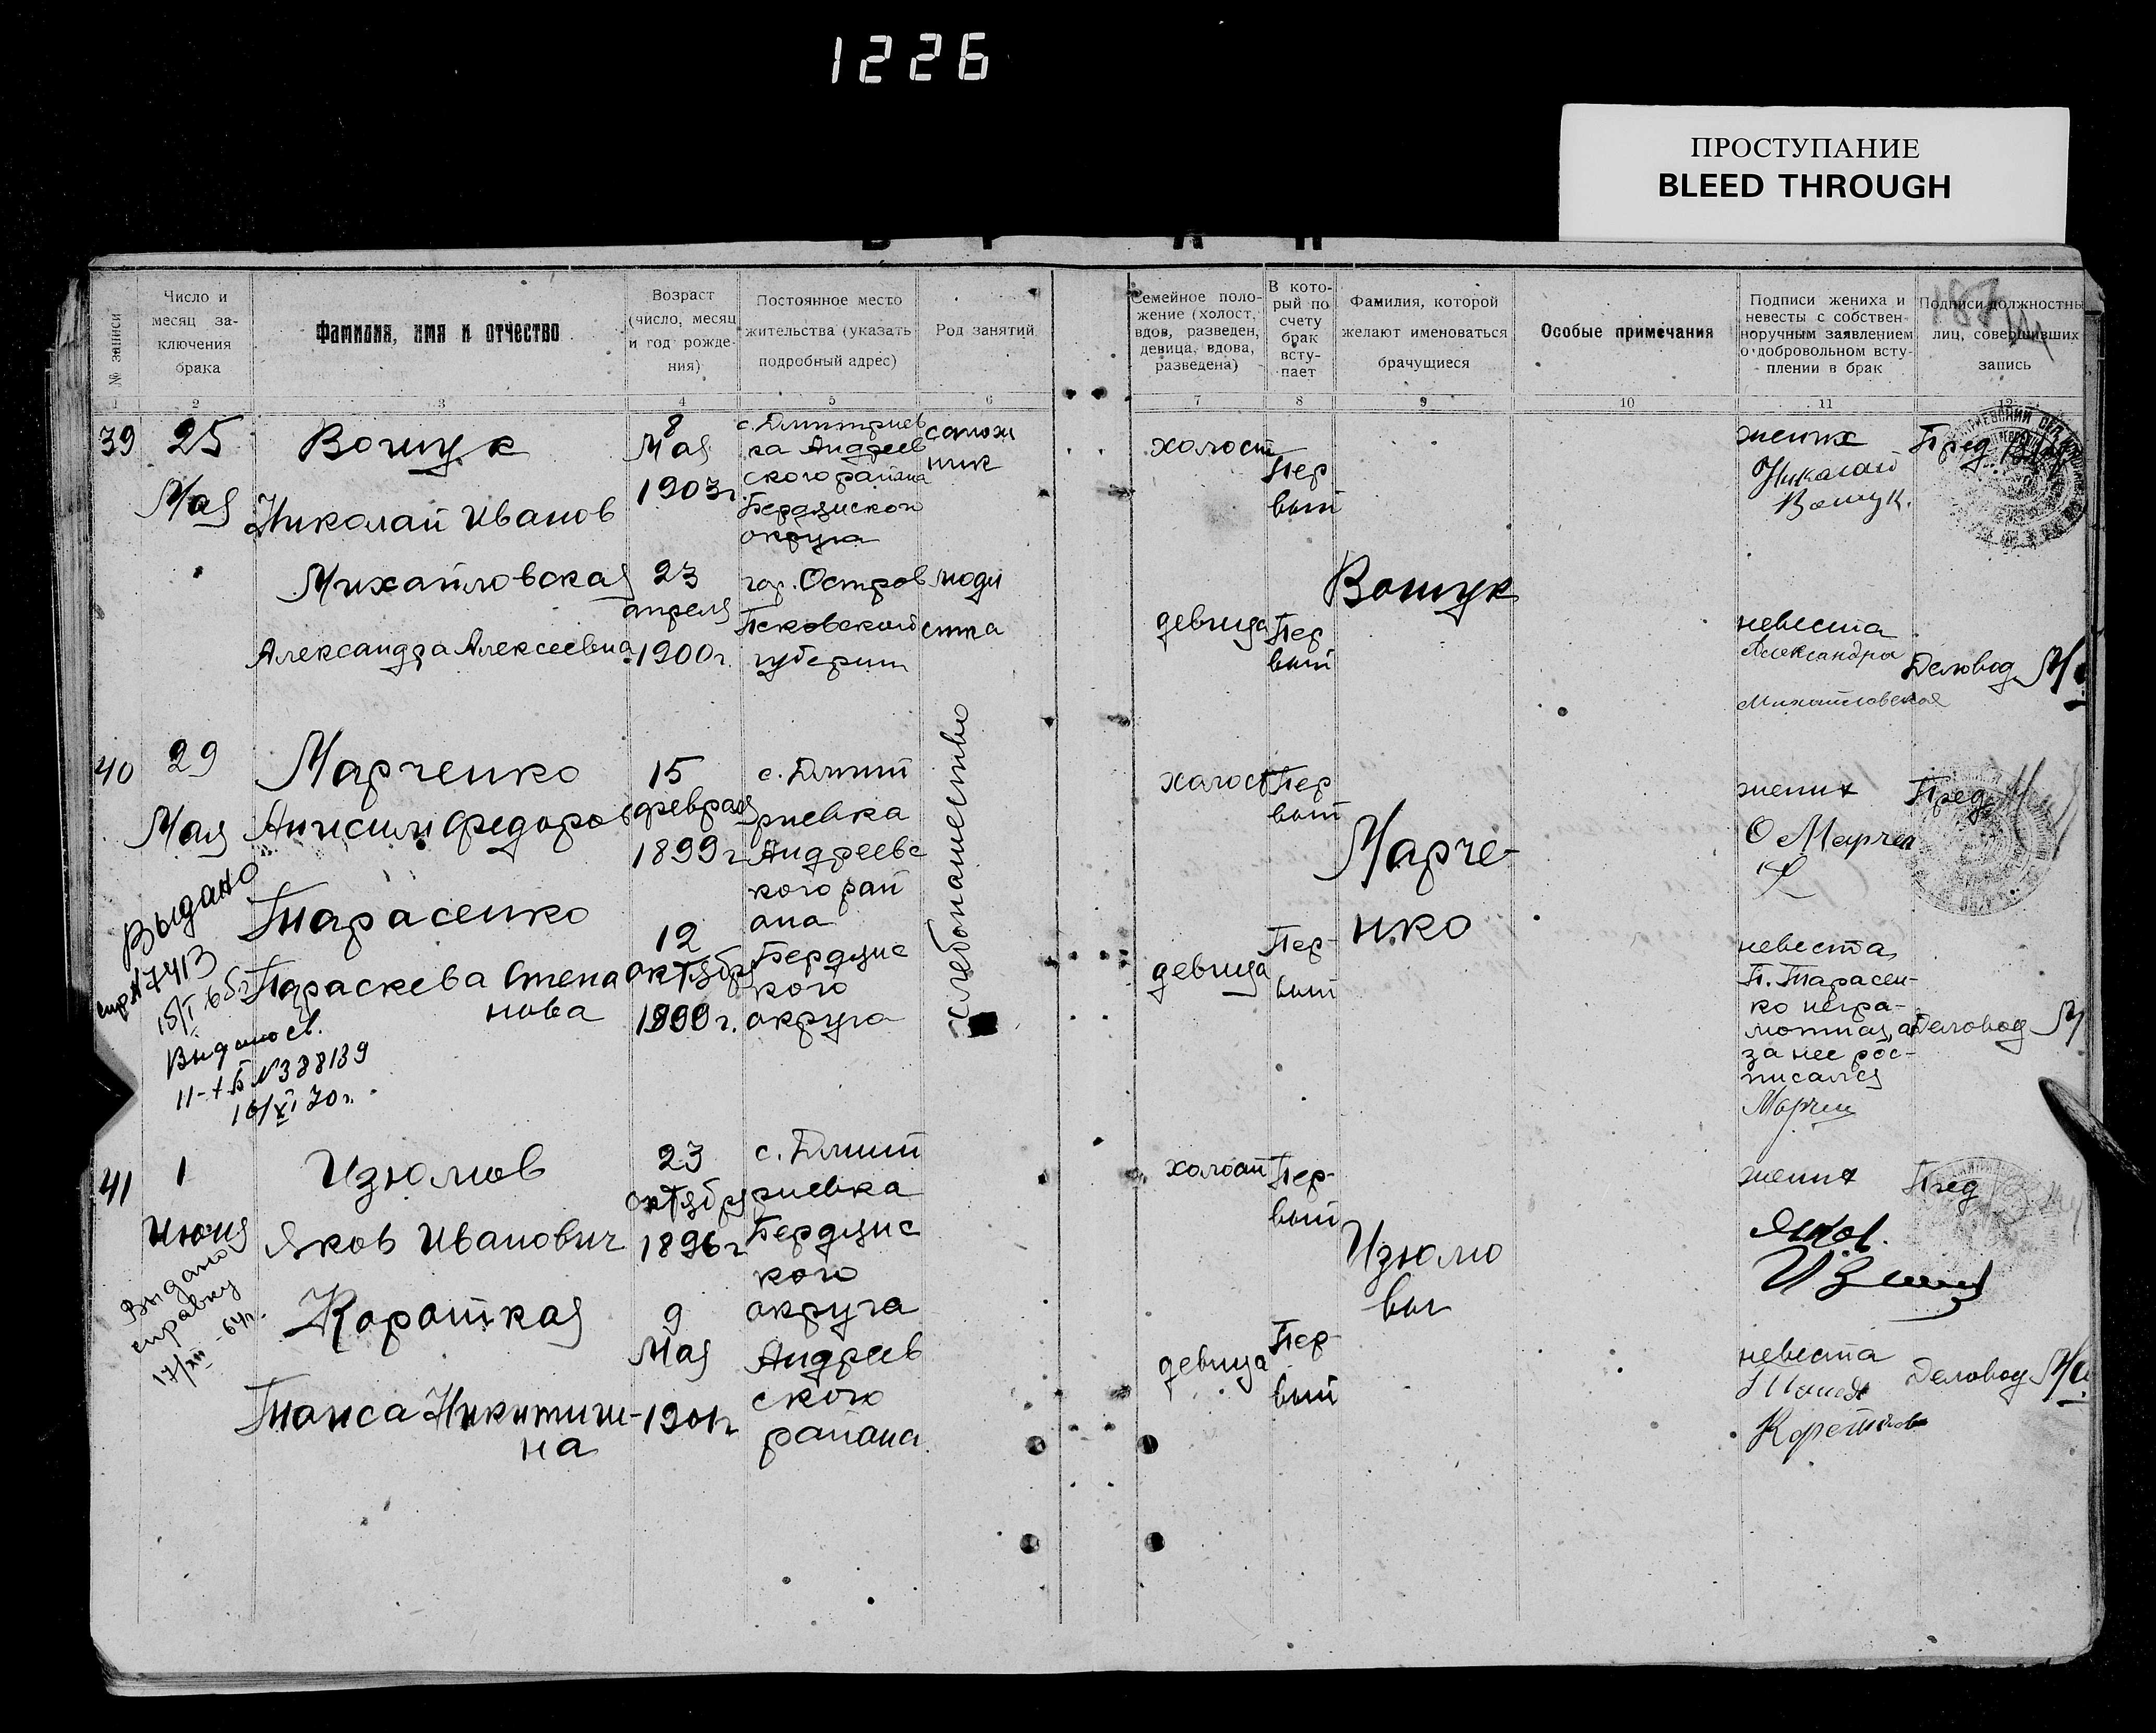 1226
ПРОСТУПАНИЕ
BLEED THROUGH
№ записи
Число и
месяц за-
ключения
брака
Фамилия, имя и отчество
Возраст
(число, месяц
и год рожде-
ния)
Постоянное место
жительства (указать
подробный адрес)
Род занятий
Семейное поло-
жение (холост,
вдов, разведен,
девица, вдова,
разведена)
В кото-
рый по
счету
брак
всту-
пает
Фамилия, которой
желают именоваться
брачущиеся
Особые примечания
Подписи жениха и
невесты с собствен-
норучным заявлением
о добровольном всту-
плении в брак
Подписи должностны
лиц, совершивших
запись
2
3
4
5
6
7
8
9
10
11
12
39
25
Мая
Вощук
Николай Иванов
8
Мая
1903г.
с. Дмитриев
ка Андреев
ского района
Бердянского
округа
сапож
ник
холост
Пер
вый
жених
Николай
Вощук.
Пред
Михайловская
Александра Алексеевна
23
апреля
1900г.
гор. Остров
Псковской
губернии
моди
стка
девица
Пер
вый
Вощук
невеста
Александра
Михайловская
Деловод
40
29
Мая
Марченко
Анисим Федоров
15
февраля
1899г
с. Дмит
риевка
Андреевс
кого рай
она
Бердянс
кого
округа
хлебопашество
холост
Пер
вый
Марче-
нко
жених
О Марчен
Пред
Тарасенко
Параскева Степа
нова
12
октября
1900г.
девица
Пер-
вый
невеста
П. Тарасен-
ко негра-
мотная, а
за нее рос-
писался
Марчен
Деловод
Выдано
спр № 7413
15/I 65г
Выдано св.
№ 388139
16/XI 70г.
41
1
Июня
Изюмов
Яков Иванович
23
октября
1896г
с. Дмит
риевка
Бердянс
кого
округа
Андреев
ского
района.
холост
Пер-
вый
Изюмо
вы
жених
Яков.
Пред
Короткая
Таиса Никитиш-
на
9
Мая
1901г
девица
Пер-
вый
невеста
Деловод
Выдано
справку
17/XII-64г.